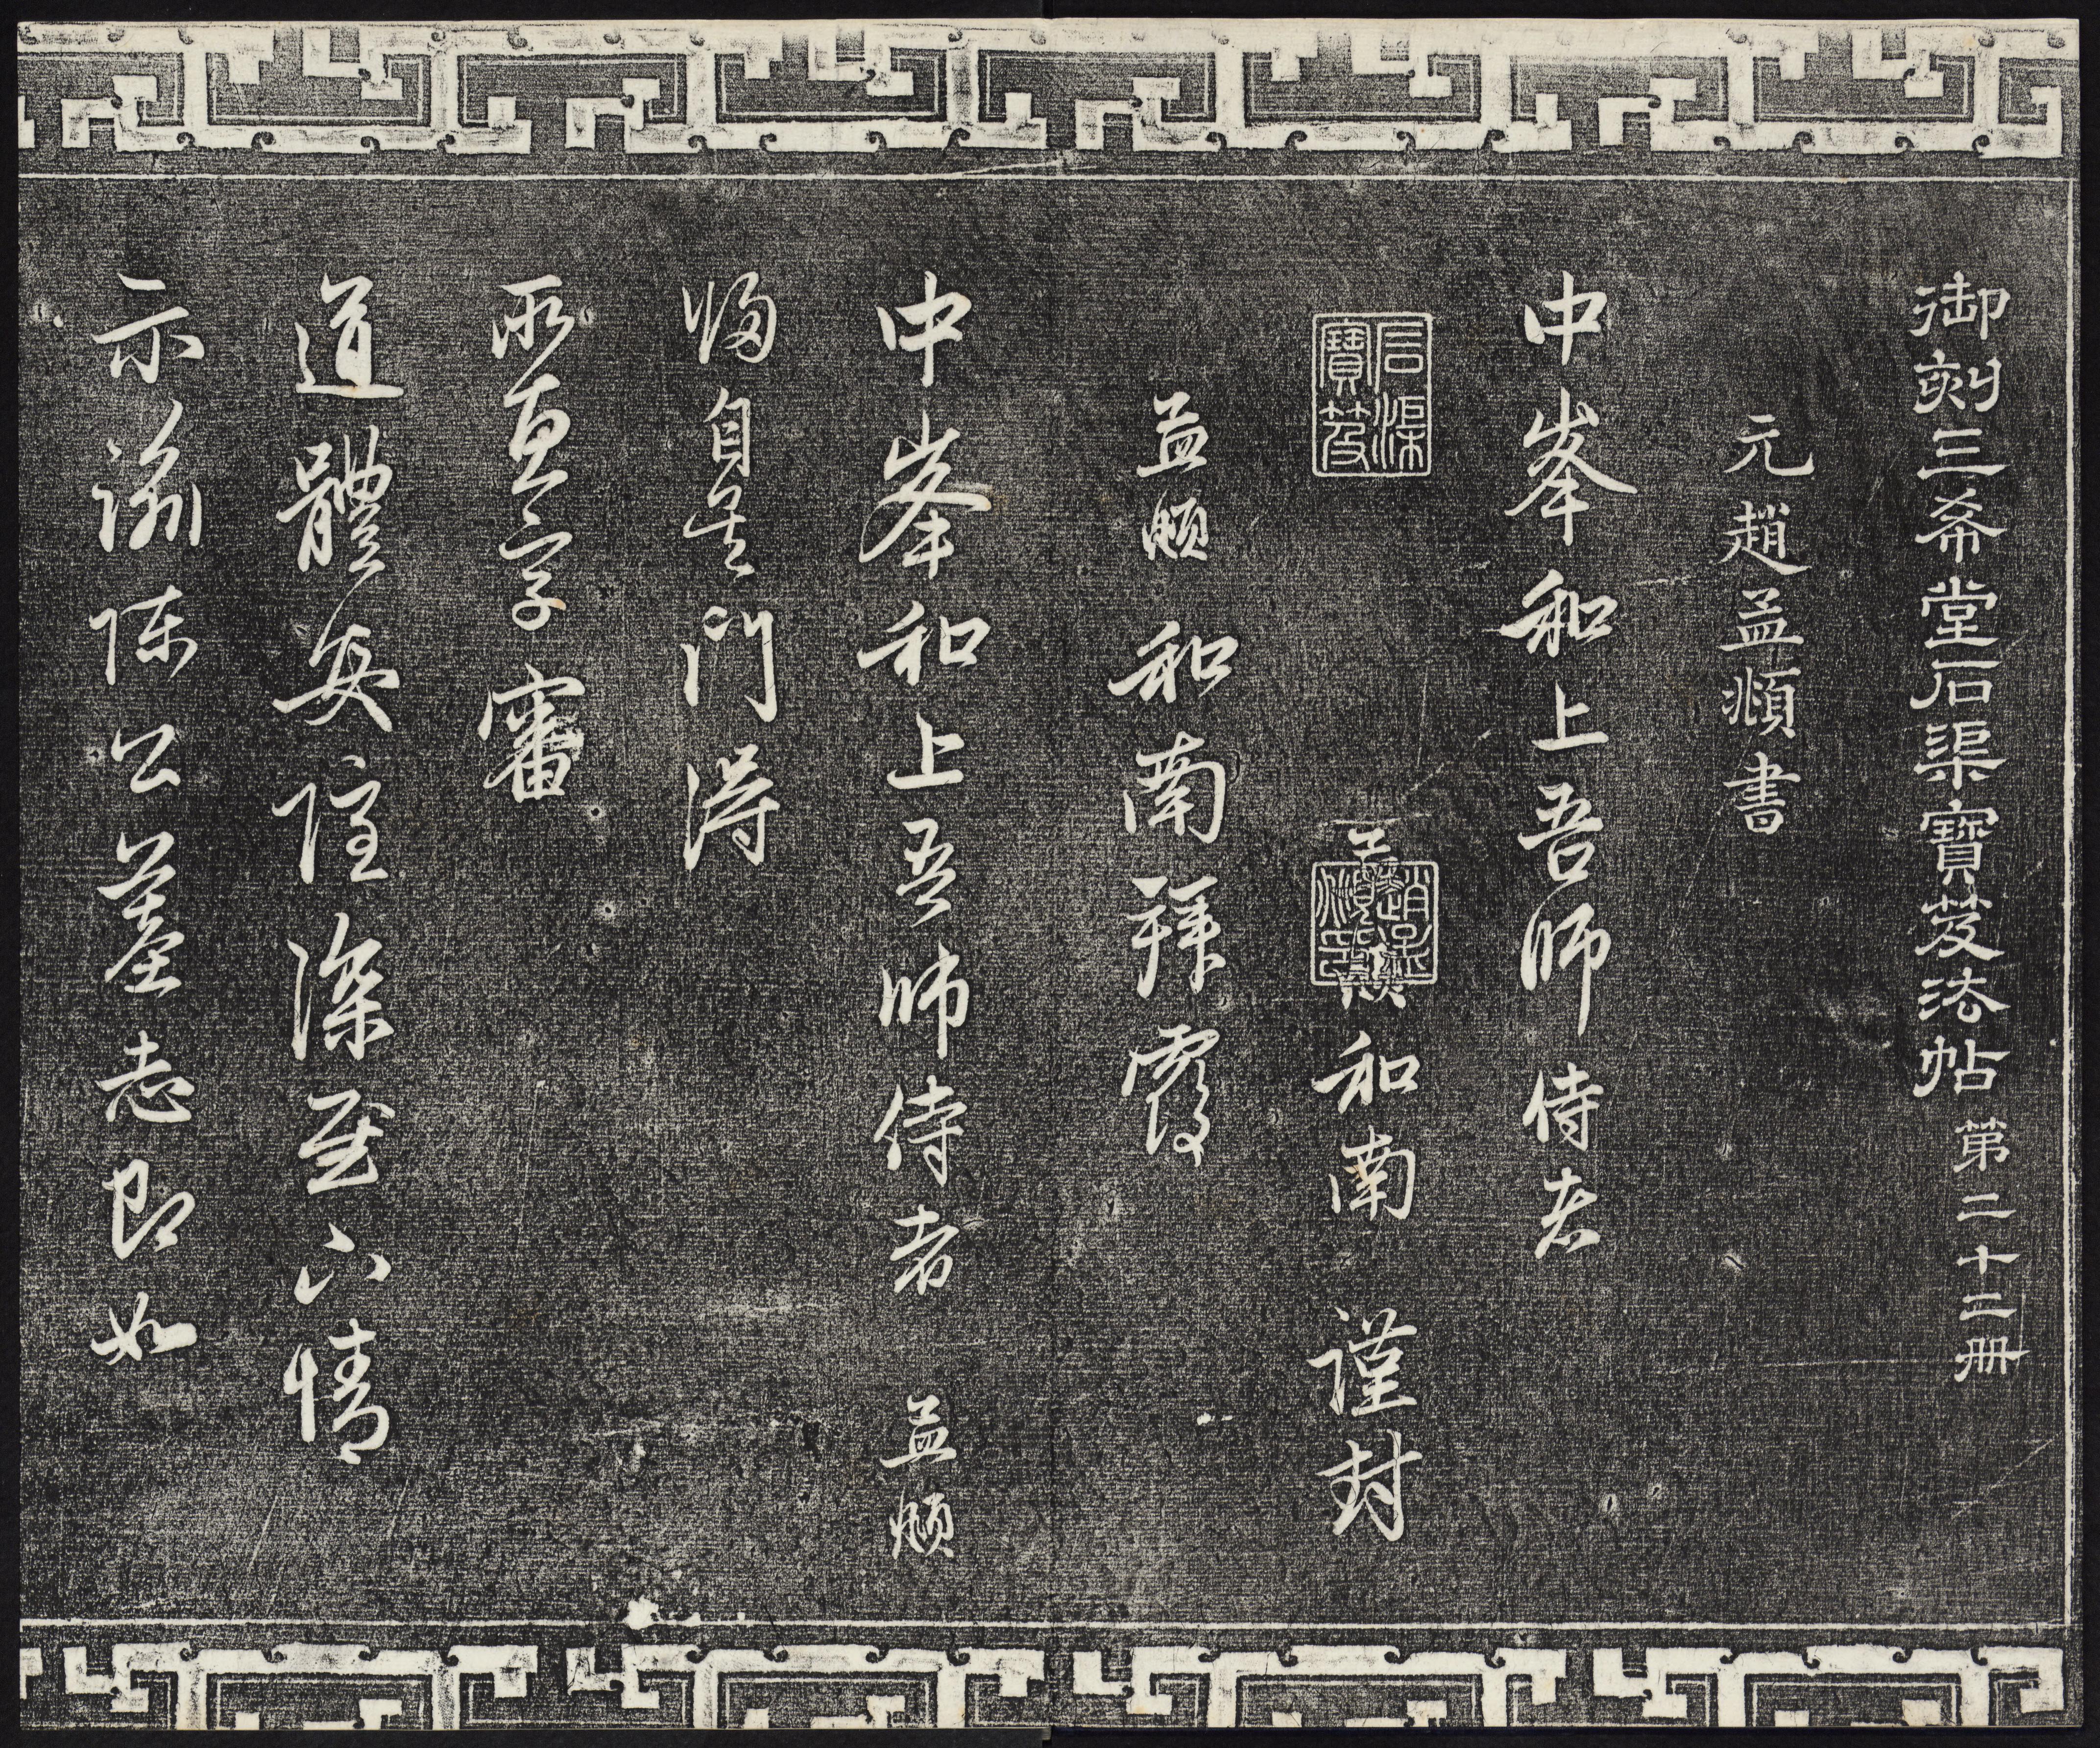 御刻三希堂石渠寶笈法帖第二十二冊
元趙孟頫書
中峯和上吾師侍者
石渠寶笈
趙孟頫印
和南 謹封
孟頫 和南拜覆
中峯和上吾師侍者 孟頫
歸自吳門得
所惠字審
道體安隱深慰下情
示諭陳公墓志即如